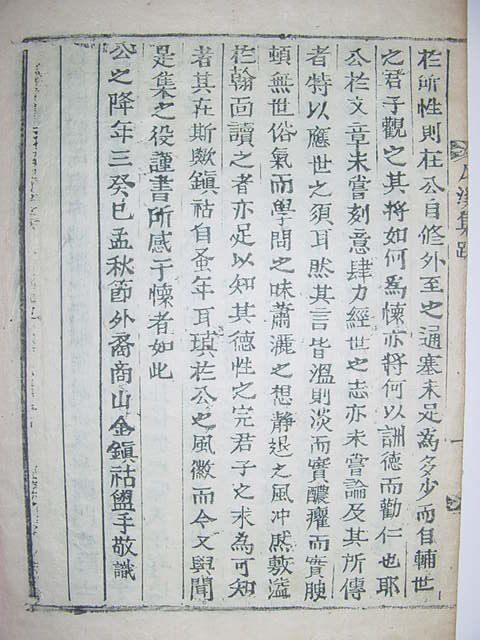 溪集跋
於所性則在公自修外至之通塞未足為多少而自輔世
之君子觀之其將如何為懷亦將何以訓德而勸仁也耶
公於文章未嘗刻意肆力經世之志亦未嘗論及其所傳
者特以應世之須耳然其言皆溫則淡而實醲癯而實腴
頓無世俗氣而學問之味蕭灑之想靜退之風冲然敷溢
於翰面讀之者亦足以知其德性之完君子之未為可知
者其在斯歟鎭祜自蚤年耳瑱於公之風徽而今又與聞
是集之役謹書所感于懷者如此
公之降年三癸巳孟秋節外裔商山金鎭祜盥手敬識